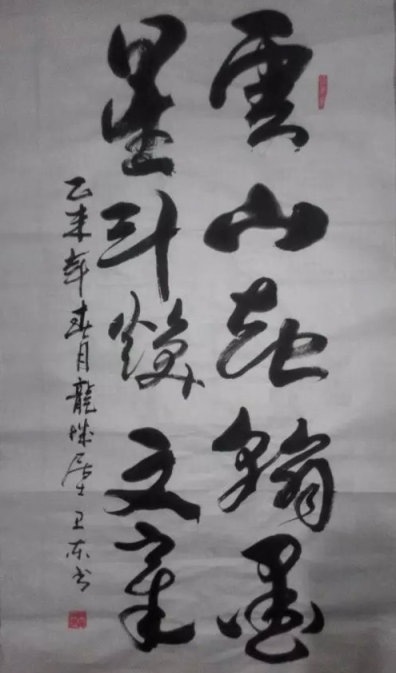 雲山起翰墨
星斗焕文章
乙未年春月龍城居士卫东书